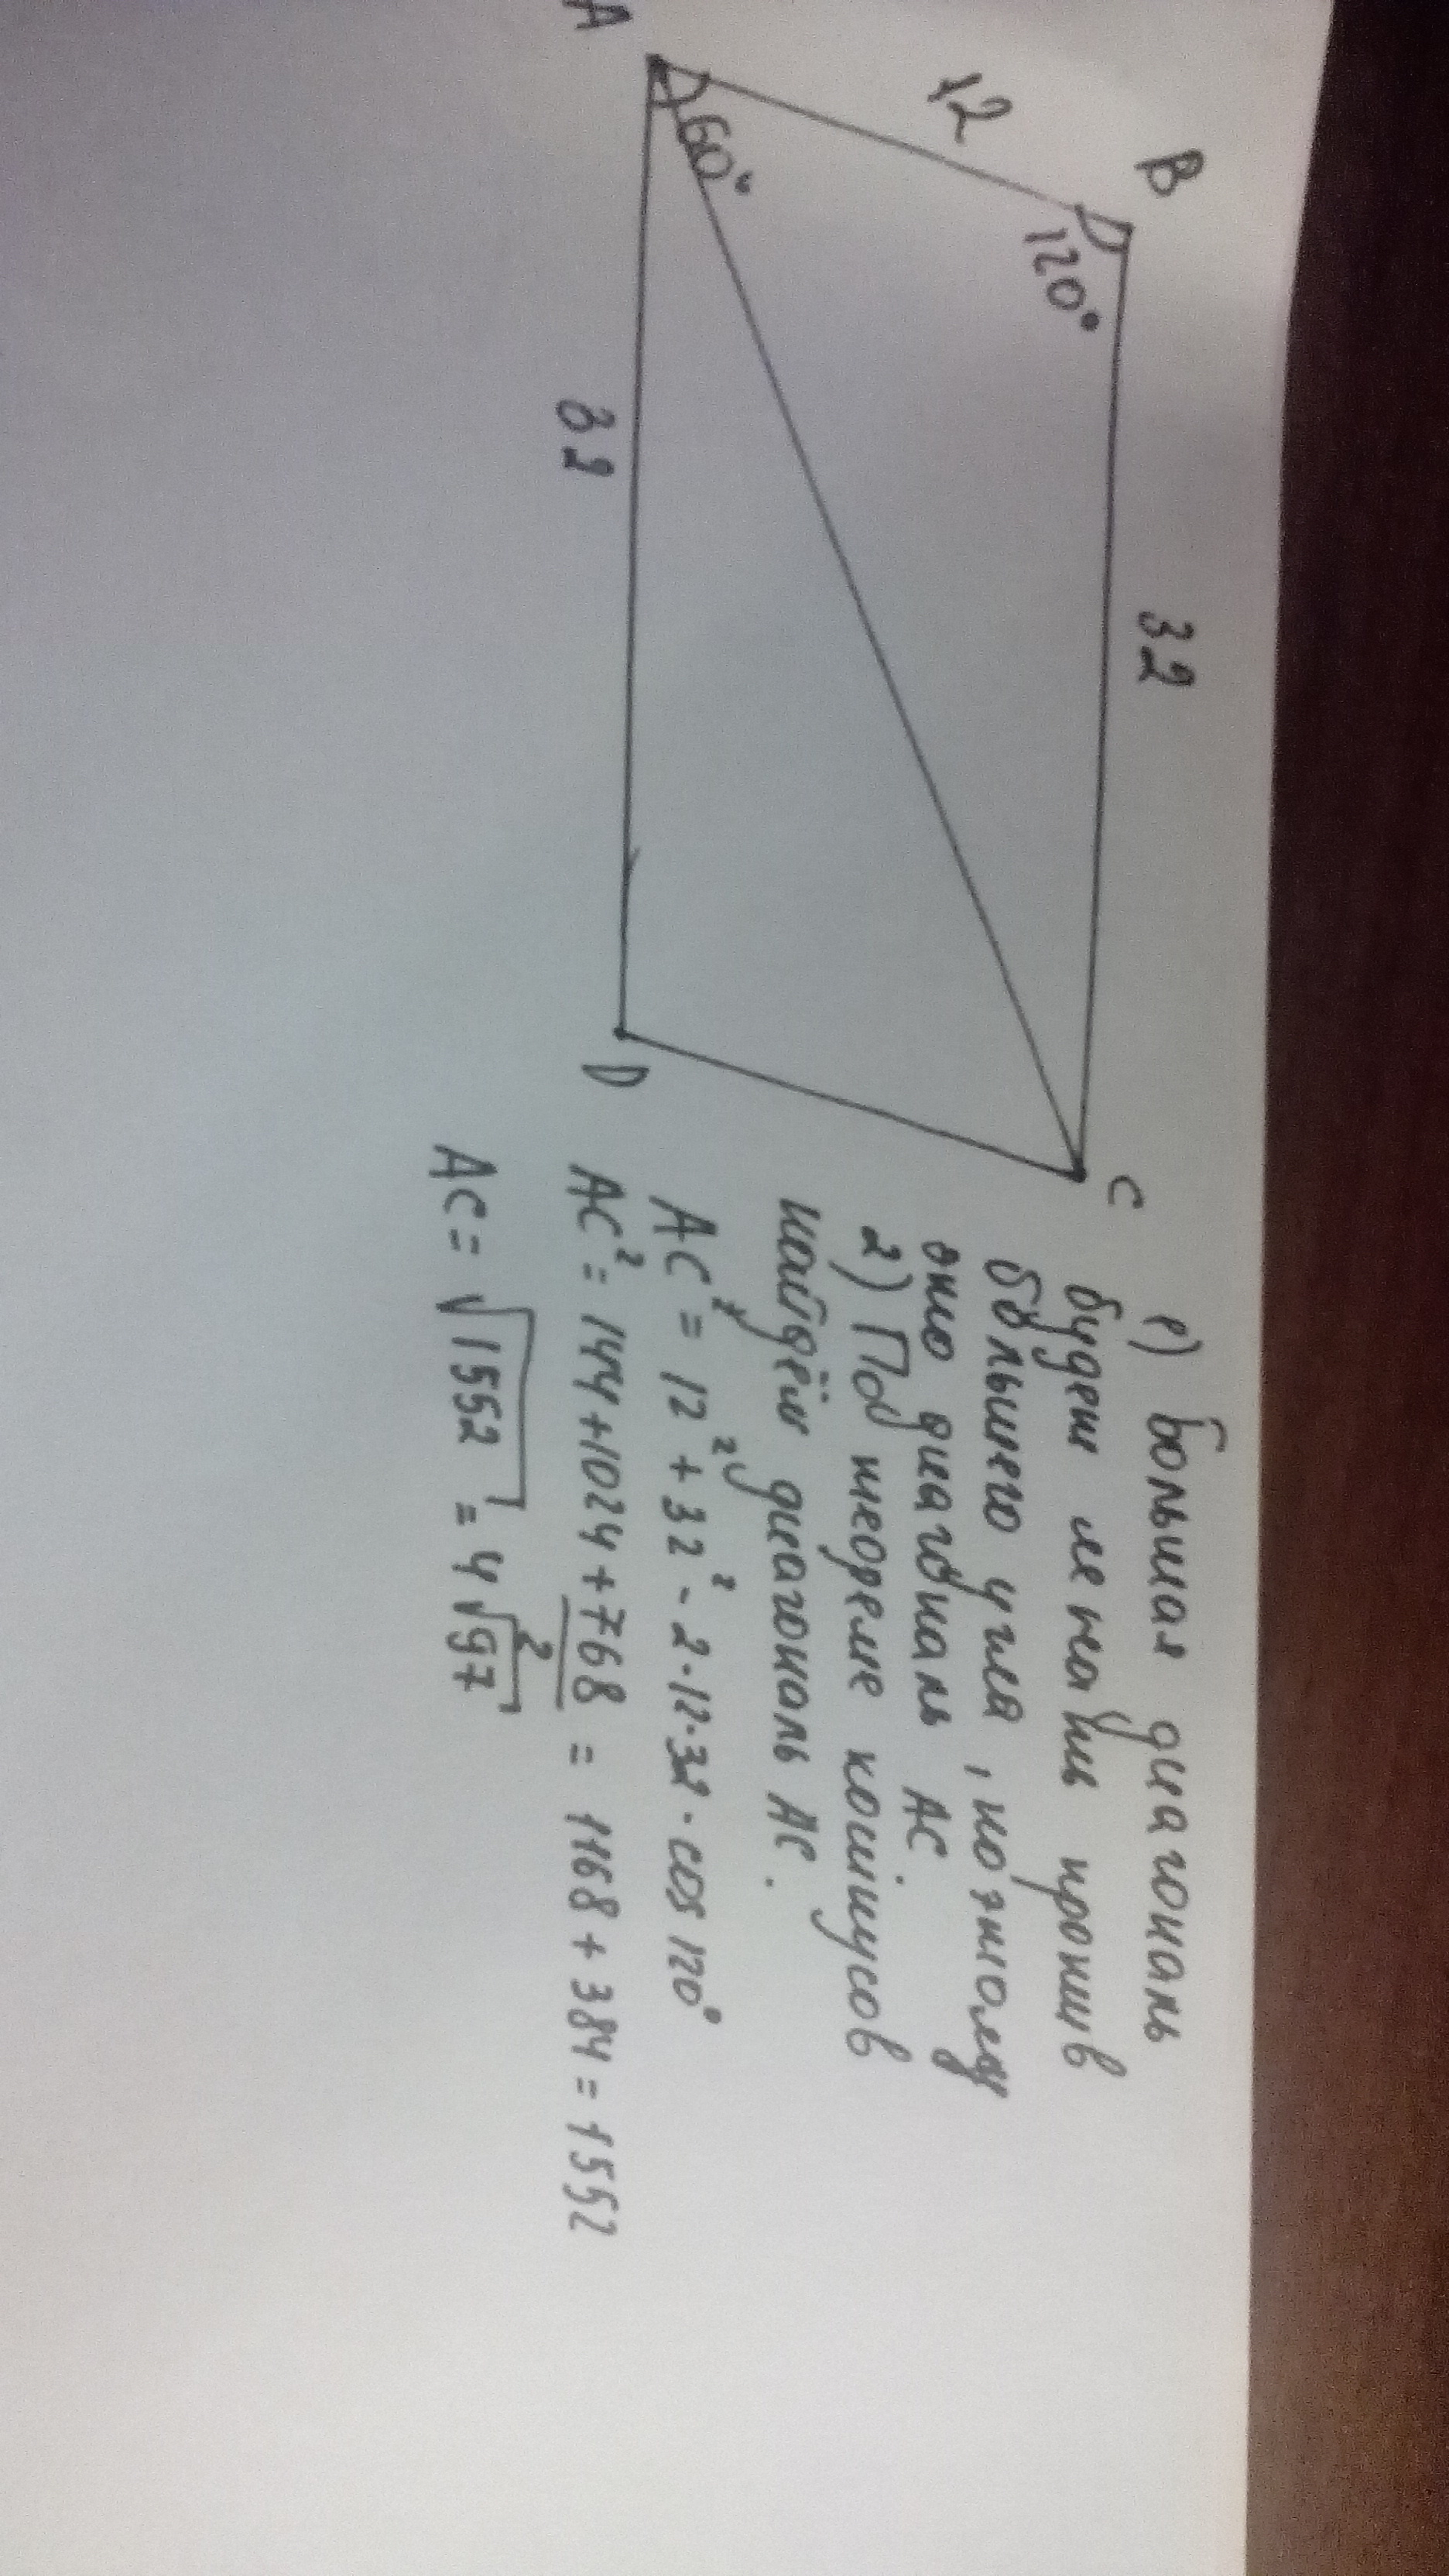 B
C
A
D
12
32
32
60°
120°
1) Большая диагональ
будет лежать против
большего угла, поэтому
это диагональ AC.
2) По теореме косинусов
найдём диагональ AC.
AC² = 12² + 32² - 2·12·32·cos 120°
AC² = 144 + 1024 + 768/2 = 1168 + 384 = 1552
AC = √1552 = 4√97